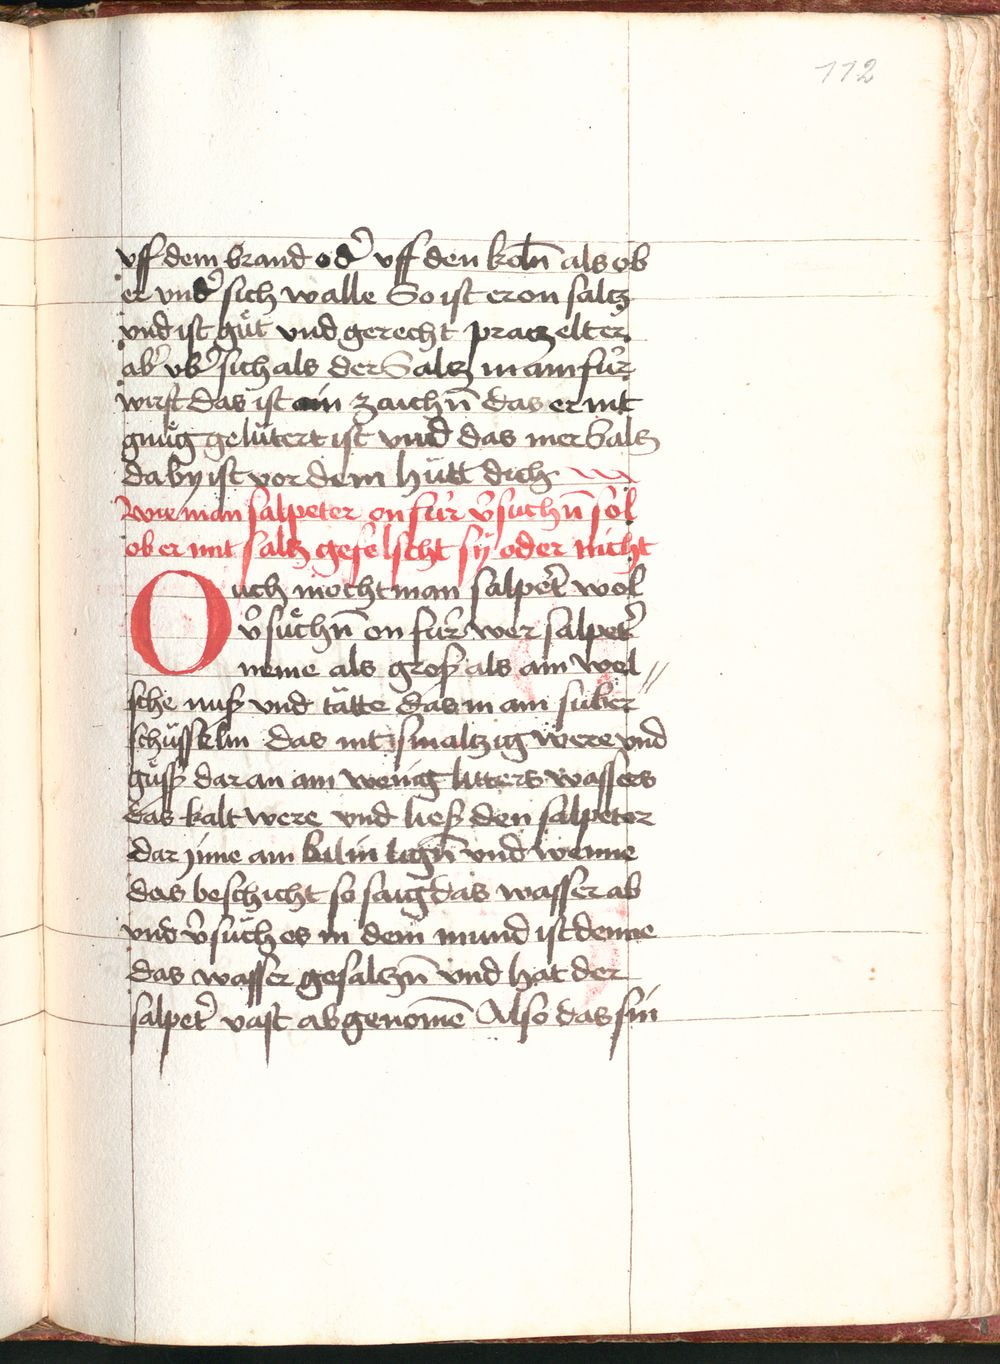 112
vff dem brand od᷎ vff den koln̄ als ob
er vnd᷎ sich walle So ist er on saltz
vnd ist gůt vnd gerecht pratzelter
ab᷎ vb᷎ sich als der Saltz in ain fúr
wirft das ist ain zaichn̄ das er nit
gnůg gelütert ist vnd das mer Saltz
da by ist vor dem hütt dich
wie man salpeter on fúr v᷎suchn̄ sol
ob er mit saltz gefelscht sÿ oder nicht
Ouch mocht man salpet᷎ wol
v᷎sůchn̄ on fúr wer salpet᷎
neme als groß als ain wel//
sche nuß vnd tätte das in ain suber
schüsslin das nit smaltzig were vnd
gůss daran ain wenig luters wassers
das kalt were vnd ließ den salpeter
dar jnne ain wilin lign̄ vnd wenne
das beschicht so saig das wasser ab
vnd v᷎sůch es in dem mund ist denne
das wasser gesaltzn̄ vnd hat der
salpet᷎ vast abgenomē Also das sin